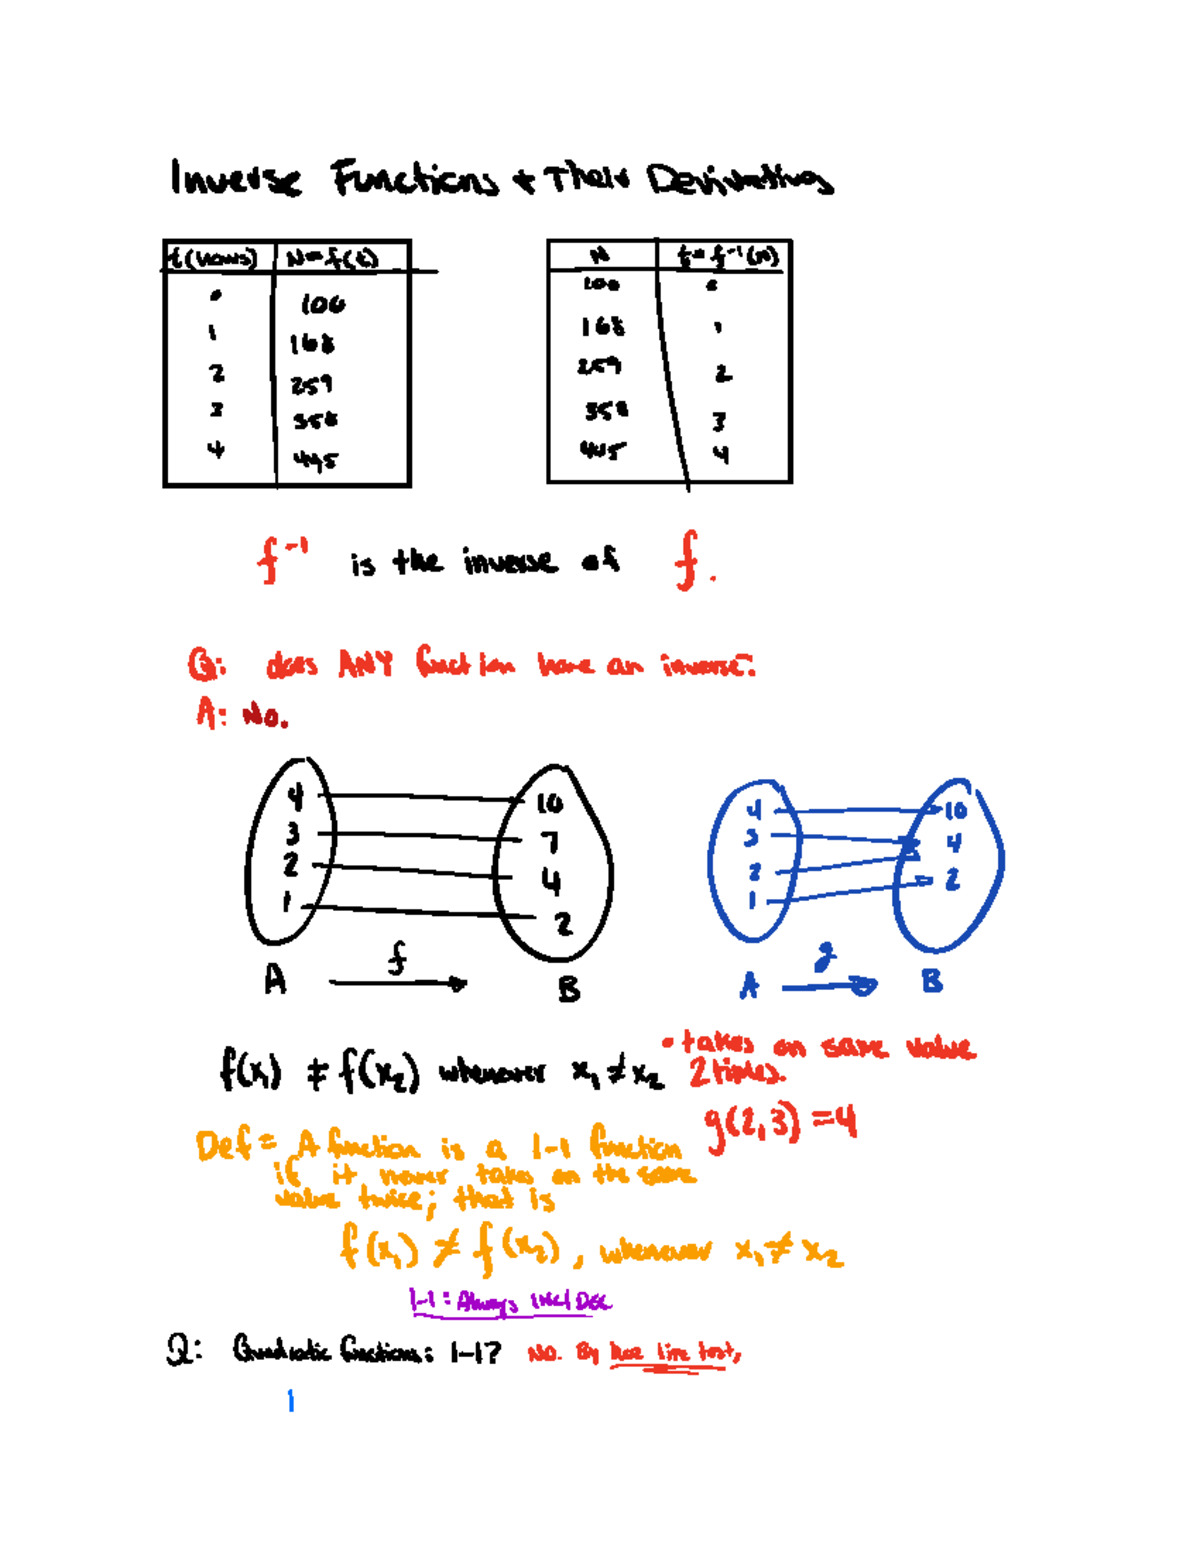 Inverse Functions + Their Derivatives
t (hours) N = f(t)
0 100
1 168
2 259
3 358
4 445
N t = f⁻¹(N)
100 0
168 1
259 2
358 3
445 4
f⁻¹ is the inverse of f.
Q: does ANY function have an inverse?
A: No.
4 10
3 7
2 4
1 2
A f B
4 10
3 4
2 2
1
A g B
f(x₁) ≠ f(x₂) whenever x₁ ≠ x₂
• takes on same value
2 times.
g(2,3) = 4
Def = A function is a 1-1 function
if it never takes on the same
value twice; that is
f(x₁) ≠ f(x₂), whenever x₁ ≠ x₂
1-1: Always Inc/Dec
Q: Quadratic functions: 1-1? No. By hor line test,